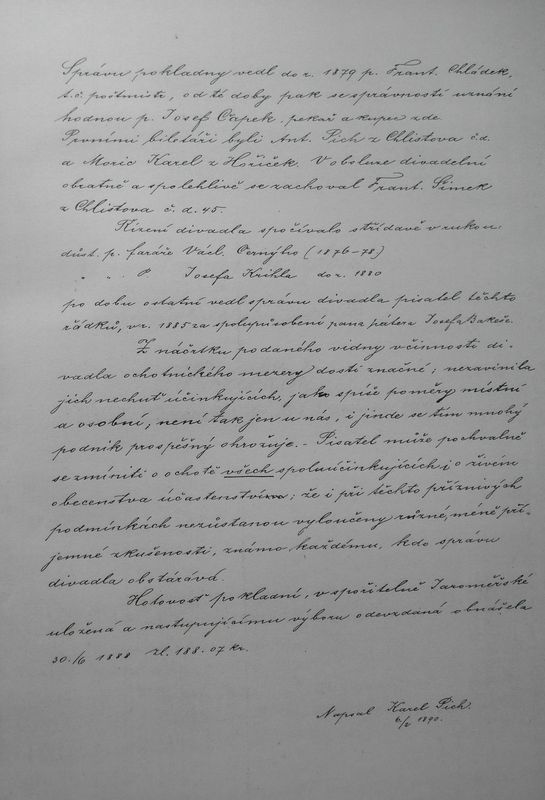 Správu pokladny vedl do r. 1879 p. Frant. Chládek,
t. č. poštmistr, od té doby pak se správností uznání
hodnou p. Josef Čapek, pekař a kupec zde.
Prvními biletáři byli Ant. Pich z Chlistova č.d.
a Moric Karel z Hořiček. V obsluze divadelní
obratně a spolehlivě se zachoval Frant. Šimek
z Chlistova č. d. 45.
Řízení divadla spočívalo střídavě v rukou:
důst. p. faráře Václ. Černýho (1876–78)
„ „ P. Josefa Krihla do r. 1880
po dobu ostatní vedl správu divadla pisatel těchto
řádků, v r. 1885 za spolupůsobení pana pátera Josefa Bakeše.
Z náčrtku podaného vidny v činnosti di-
vadla ochotnického mezery dosti značné; nezavinila
jich nechuť účinkujících, jako spíše poměry místní
a osobní; není tak jen u nás, i jinde se tím mnohý
podnik prospěšný ohrožuje. – Pisatel může pochvalně
se zmíniti o ochotě všech spoluúčinkujících i o živém
obecenstva účastenství; že i při těchto příznivých
podmínkách nezůstanou vyloučeny různé, méně pří-
jemné zkušenosti, známo každému, kdo správu
divadla obstárává.
Hotovosť pokladní, v spořitelně Jaroměřské
uložená a nastupujícímu výboru odevzdaná obnášela
30./6 1888 zl. 188.07 kr.
Napsal Karel Pich.
6/2 1890.